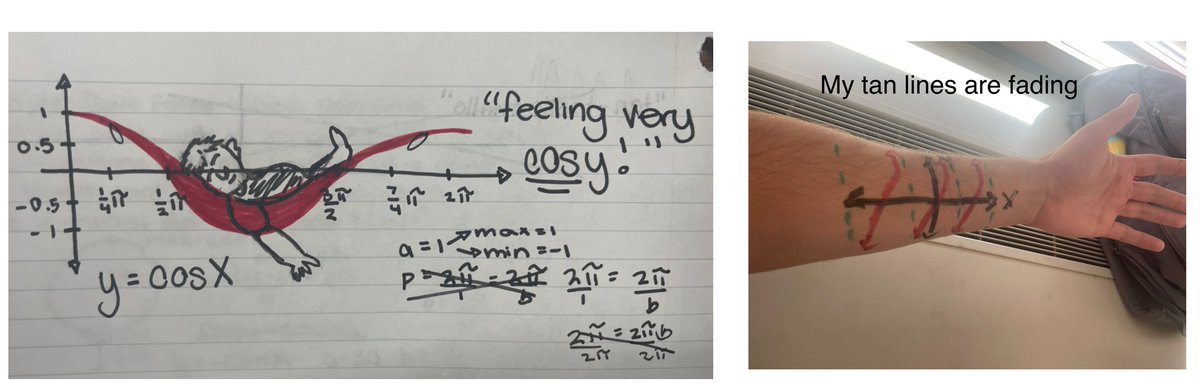 1
0.5
-0.5
-1
1/4 π
1/2 π
3/2 π
7/4 π
2π
"feeling very
cosy!"
y = cosX
a = 1 → max = 1
→ min = -1
P = 2π/1 = 2π/b
2π/1 = 2π/b
2π/2π = 2πb/2π
My tan lines are fading
X